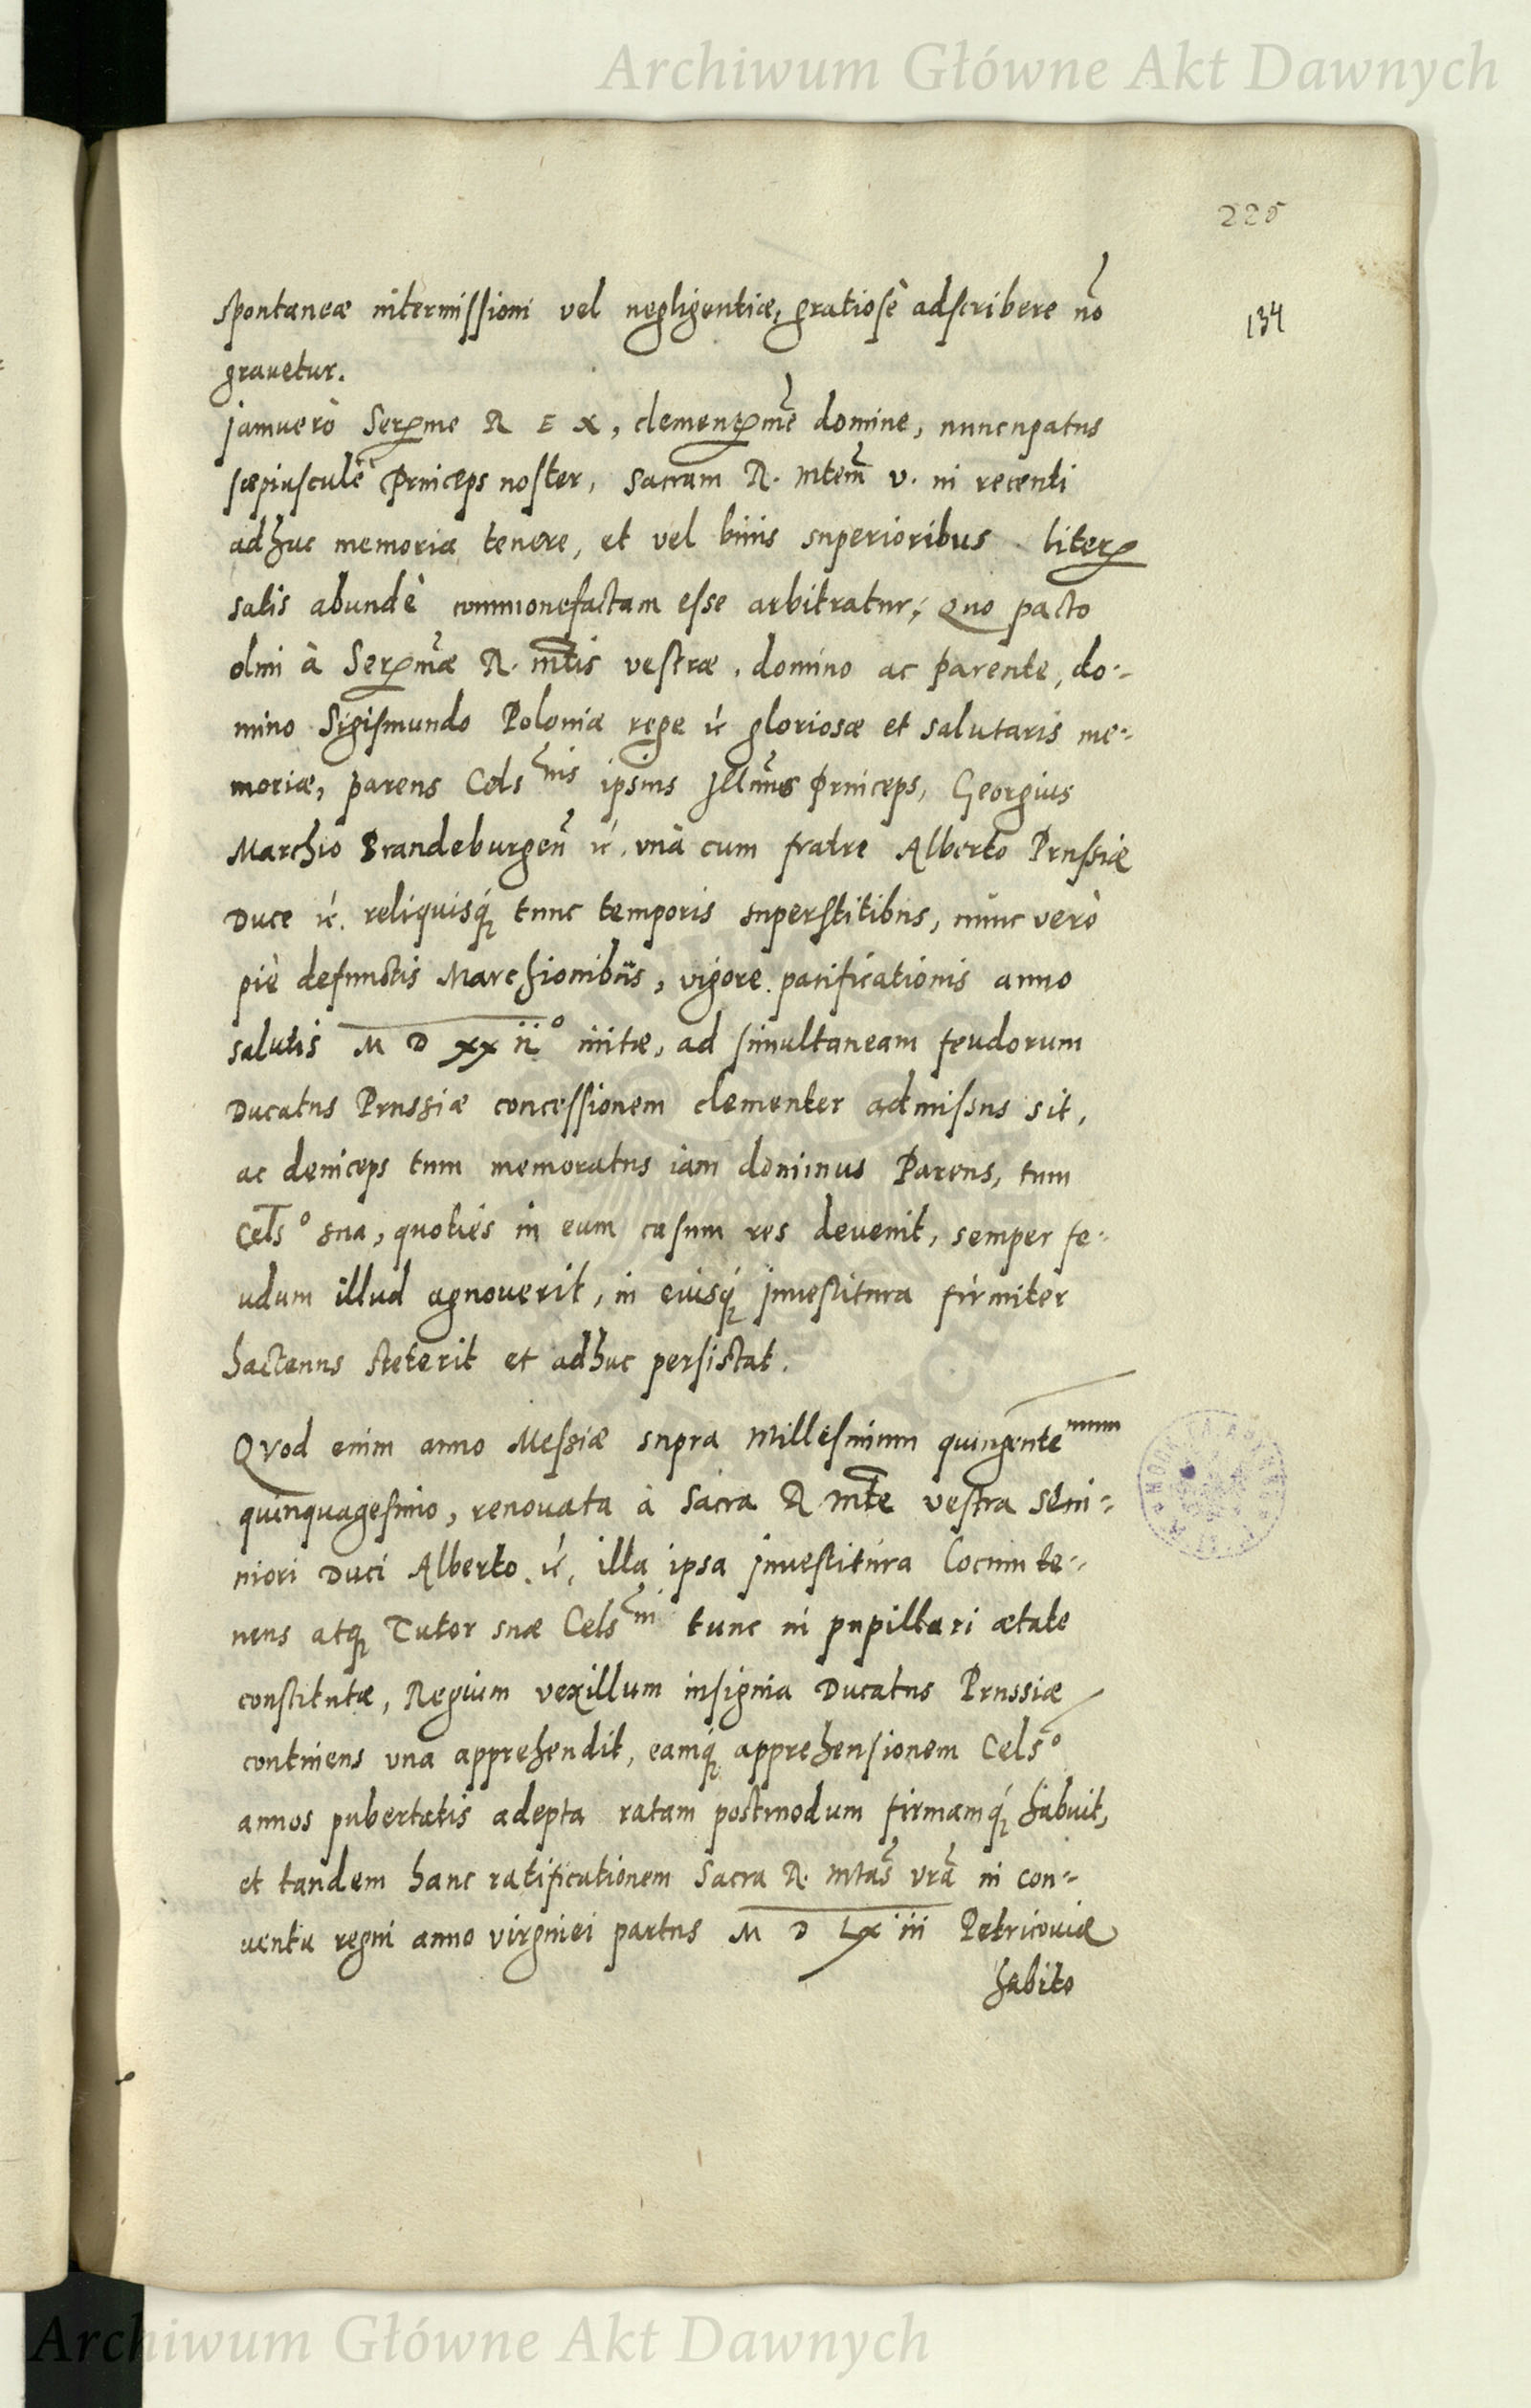 Archiwum Główne Akt Dawnych
225
134
spontaneæ intermissioni vel negligentiæ, gratiosè adscribere nō
grauetur.
jamuerò Serꝑme R E X, clementꝑmē domine, nuncupatus
sæpiusculè Princeps noster, sacram R. mtem̄ v. in recenti
adhuc memoria tenere, et vel binis superioribus literꝑ
satis abundè commonefactam esse arbitratur; Quo pacto
olim à Serꝑm̄æ R. mtis vestræ. domino ac parente, do-
mino Sigismundo Poloniæ rege ꝛc gloriosæ et salutaris me-
moriæ, parens Cels nis ipsius Jllmus Princeps, Georgius
Marchio Brandeburgen̄ ꝛc. vnà cum fratre Alberto Prussiæ
Duce ꝛc. reliquisq́ꝫ tunc temporis superstitibus, nunc verò
piè defunctis Marchionibus, vigore pacificationis anno
salutis M D XX ii° initæ, ad simultaneam feudorum
Ducatus Prussiæ concessionem clementer admissus sit,
ac deinceps tum memoratus iam dominus Parens, tum
Cels° sua, quotiés in eum casum res deuenit, semper fe-
udum illud agnouerit, in eiusq́ꝫ jnuestitura firmiter
hactenus steterit et adhuc persistat.
QVod enim anno Messiæ supra Millesimum quingente mum
quinquagesimo, renouata à Sacra R mte vestra seni-
niori Duci Alberto ꝛc. illa ipsa jnuestitura Locumte-
nens atqꝫ Tutor suæ Cels ni tunc in pupillari ætate
constitutæ, Regium vexillum insignia Ducatus Prussiæ
continens vna apprehendit, eamq́ꝫ apprehensionem Cels°
annos pubertatis adepta ratam postmodum firmamq́ꝫ habuit,
et tandem hanc ratificationem Sacra R. mtas̄ vrā in con-
uentu regni anno virginei partus M D LX iii Petricouiæ
habito
Archiwum Główne Akt Dawnych